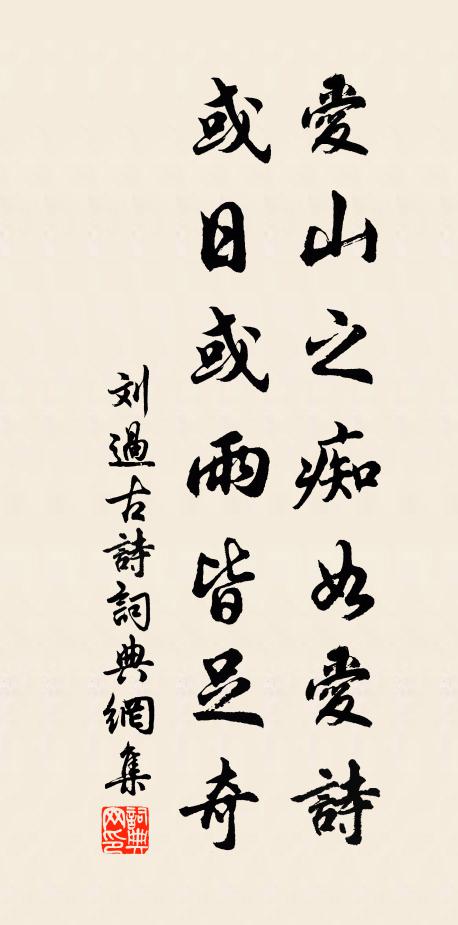 愛山之痴如愛詩
或日或雨皆足奇
刘過古詩詞典網集
詞典网印